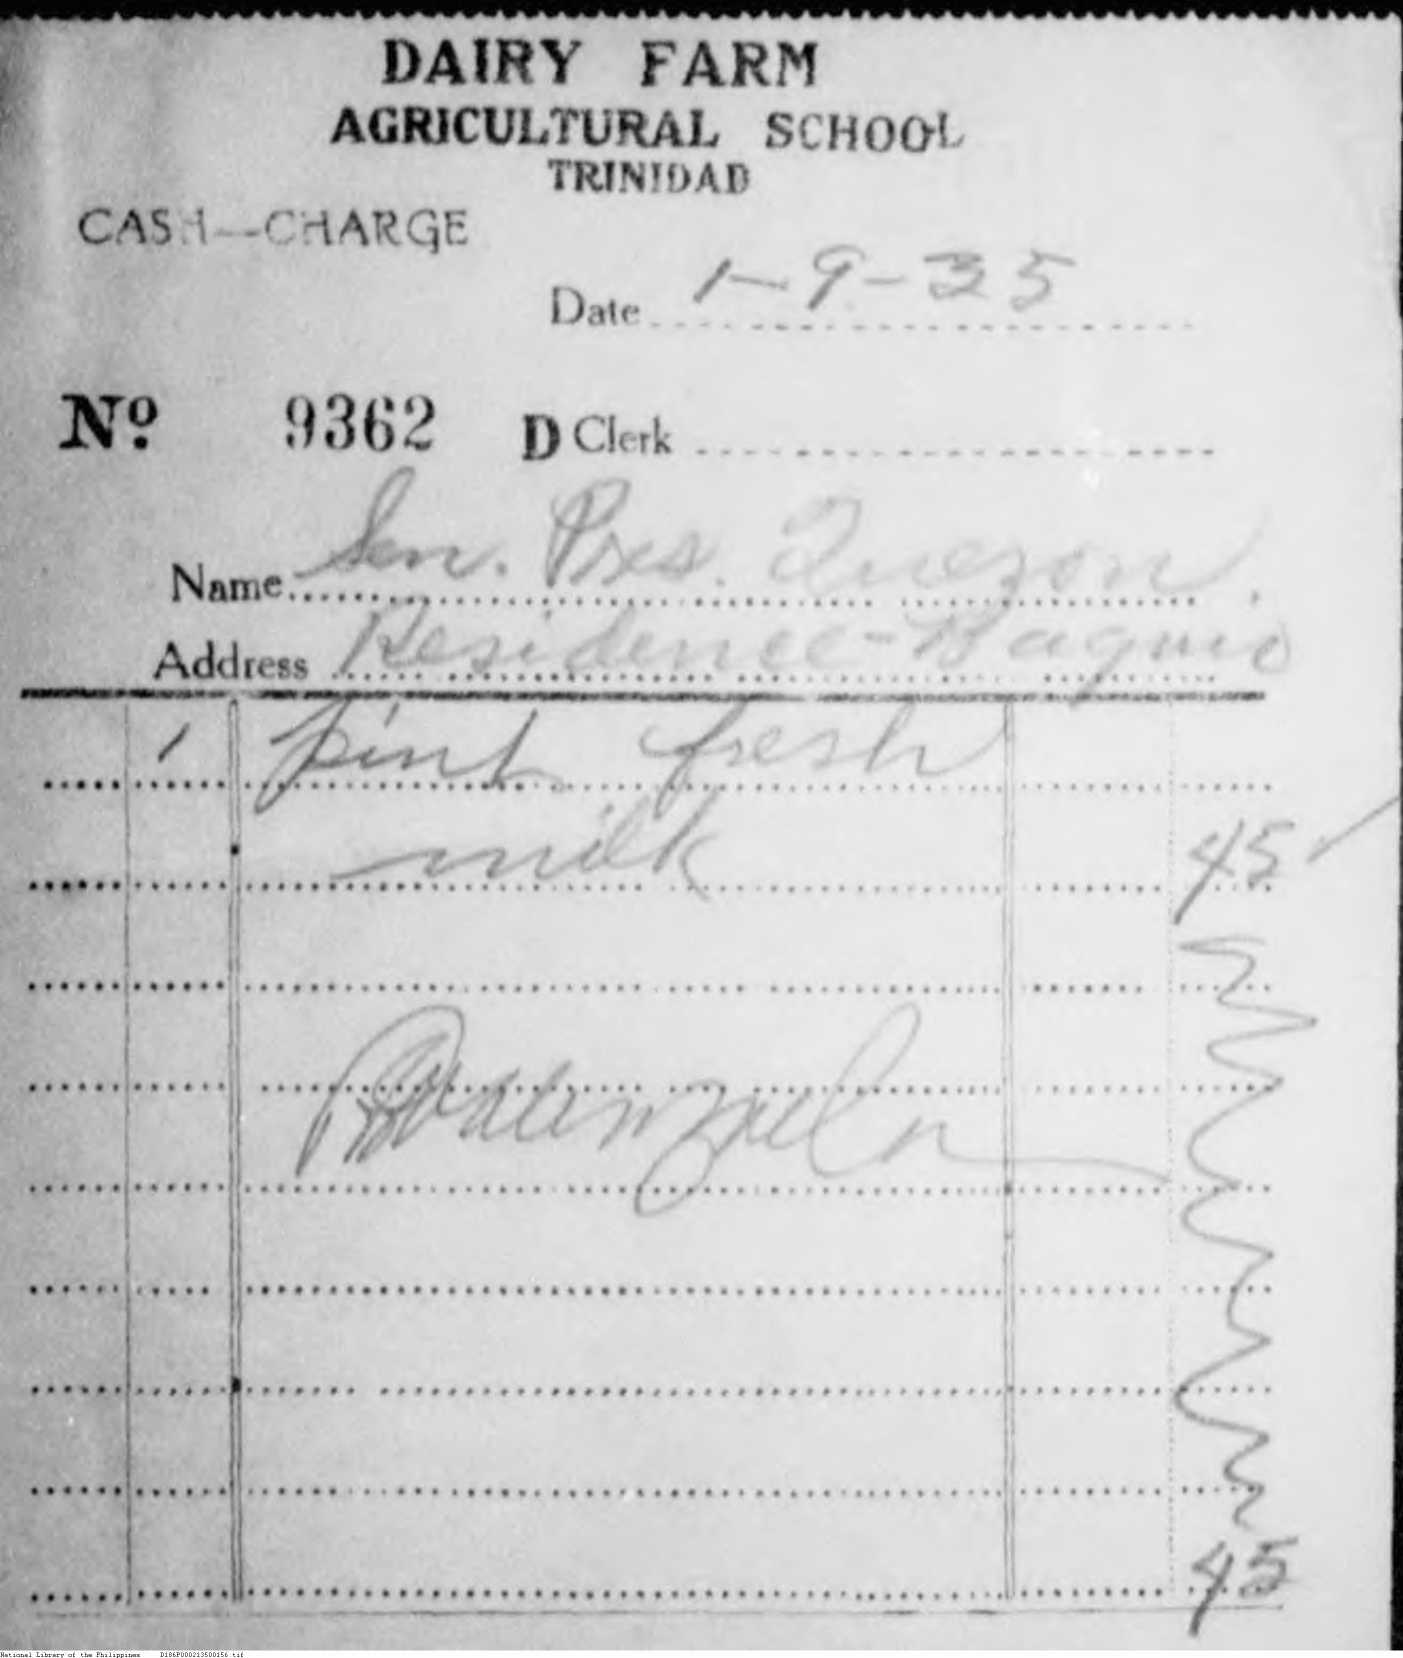 DAIRY FARM
AGRICULTURAL SCHOOL
TRINIDAD
CASH—CHARGE
Date 1-9-35
No. 9362 D Clerk
Name Sen. Pres. Quezon.
Address Residence-Baguio
1 pint fresh
milk 45 ✓
45
National Library of the Philippines D186P000213500156.tif